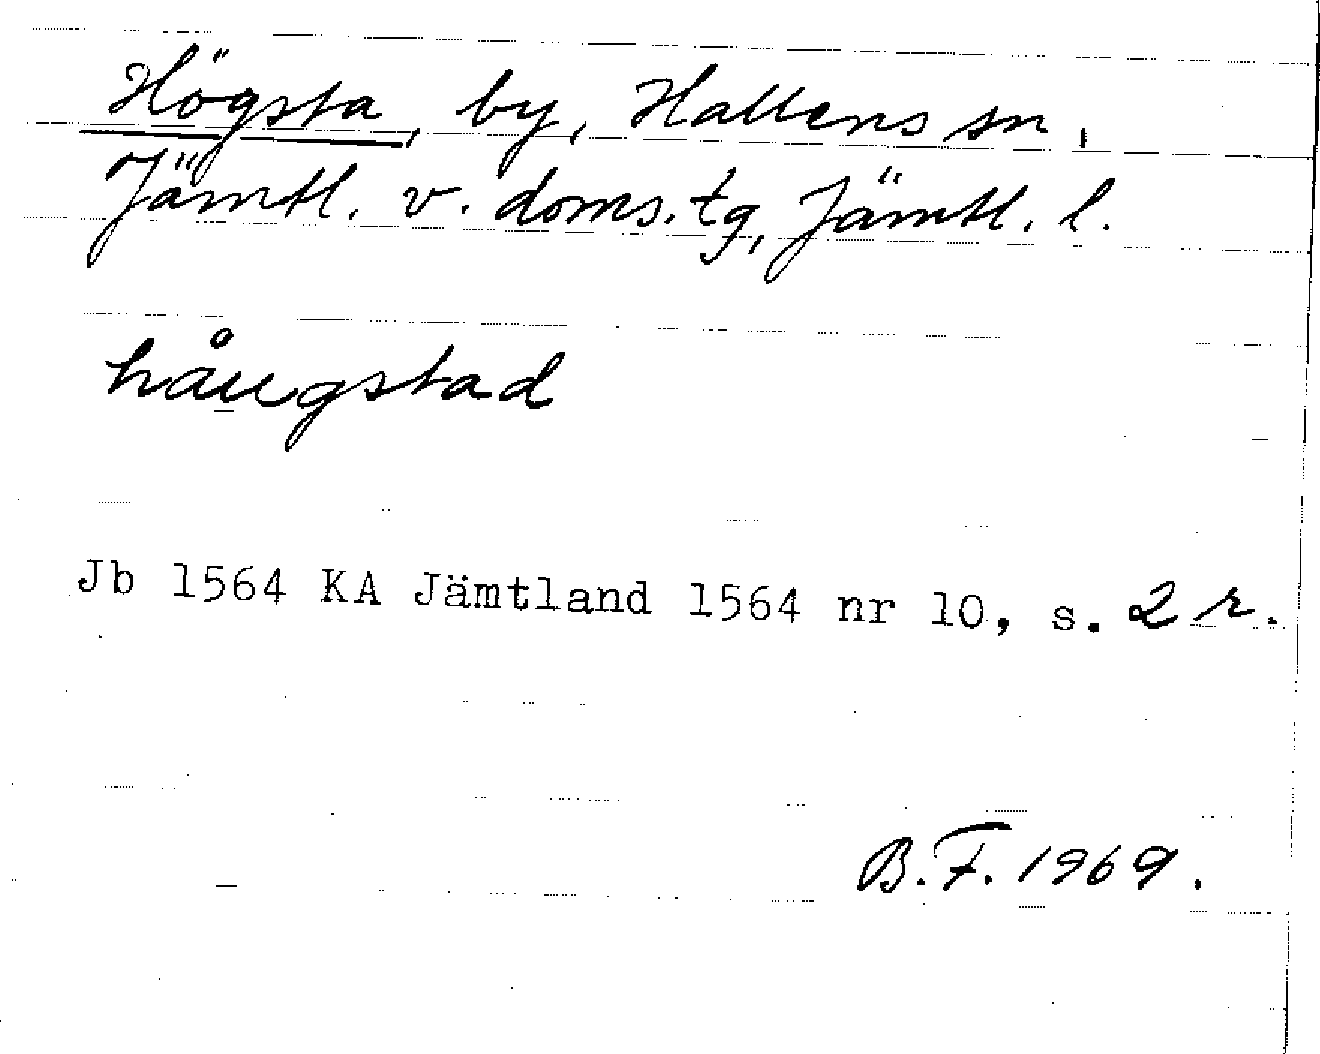 Högsta, by, Hallens sn,
Jämtl. v. doms. tg, Jämtl. l.
håugstad
Jb 1564 KA Jämtland 1564 nr 10, s. 2 r.
B.F. 1969.